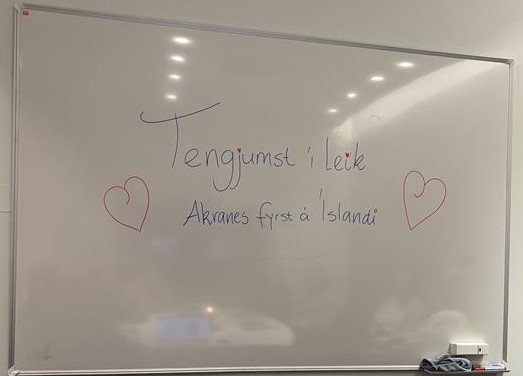 Tengjumst í Leik
Akranes fyrst á Íslandi